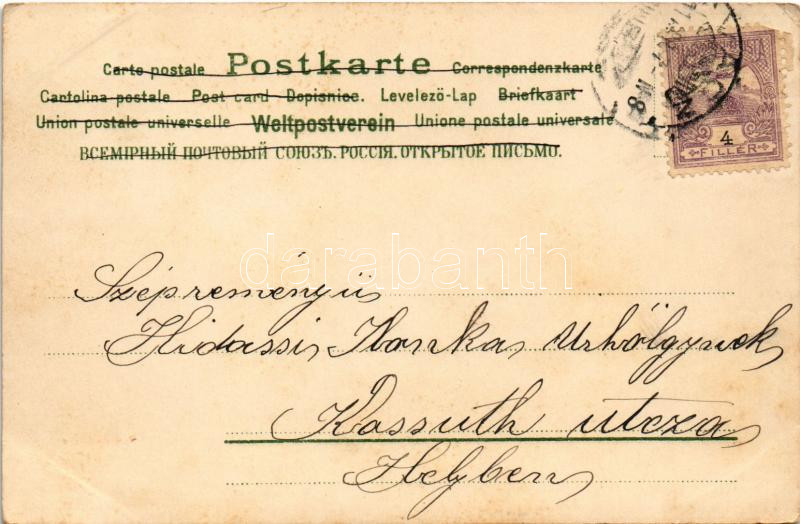 Carte postale Postkarte Correspondenzkarte
Cartolina postale Post card Dopisnice. Levelező-Lap Briefkaart
Union postale universelle Weltpostverein Unione postale universale
ВСЕМІРНЫЙ ПОЧТОВЫЙ СОЮЗЪ. РОССІЯ. ОТКРЫТОЕ ПИСЬМО.
4
FILLÉR
darabanth
Szépreményü
Hidassi Ilonka Urhölgynek
Kossuth utcza
Helyben